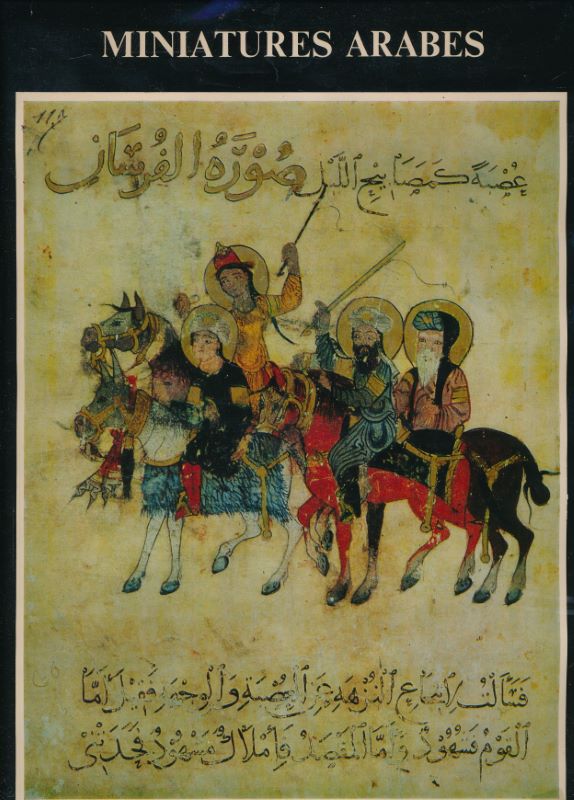 MINIATURES ARABES
عُصْبَةً كَمَصَابِيْحِ اللَّيْلِ صُوْرَةُ الفُرْسَانِ
فَسَأَلْتُ لِانْتِجَاعِ النُّزْهَةِ عَنِ العُصْبَةِ وَالْوِجْهَةِ فَقِيْلَ أَمَّا
القَوْمُ فَشُهُوْدٌ وَأَمَّا المَقْصَدُ فَإِمْلَاكٌ مَشْهُوْدٌ فَحَدَتْنِيْ